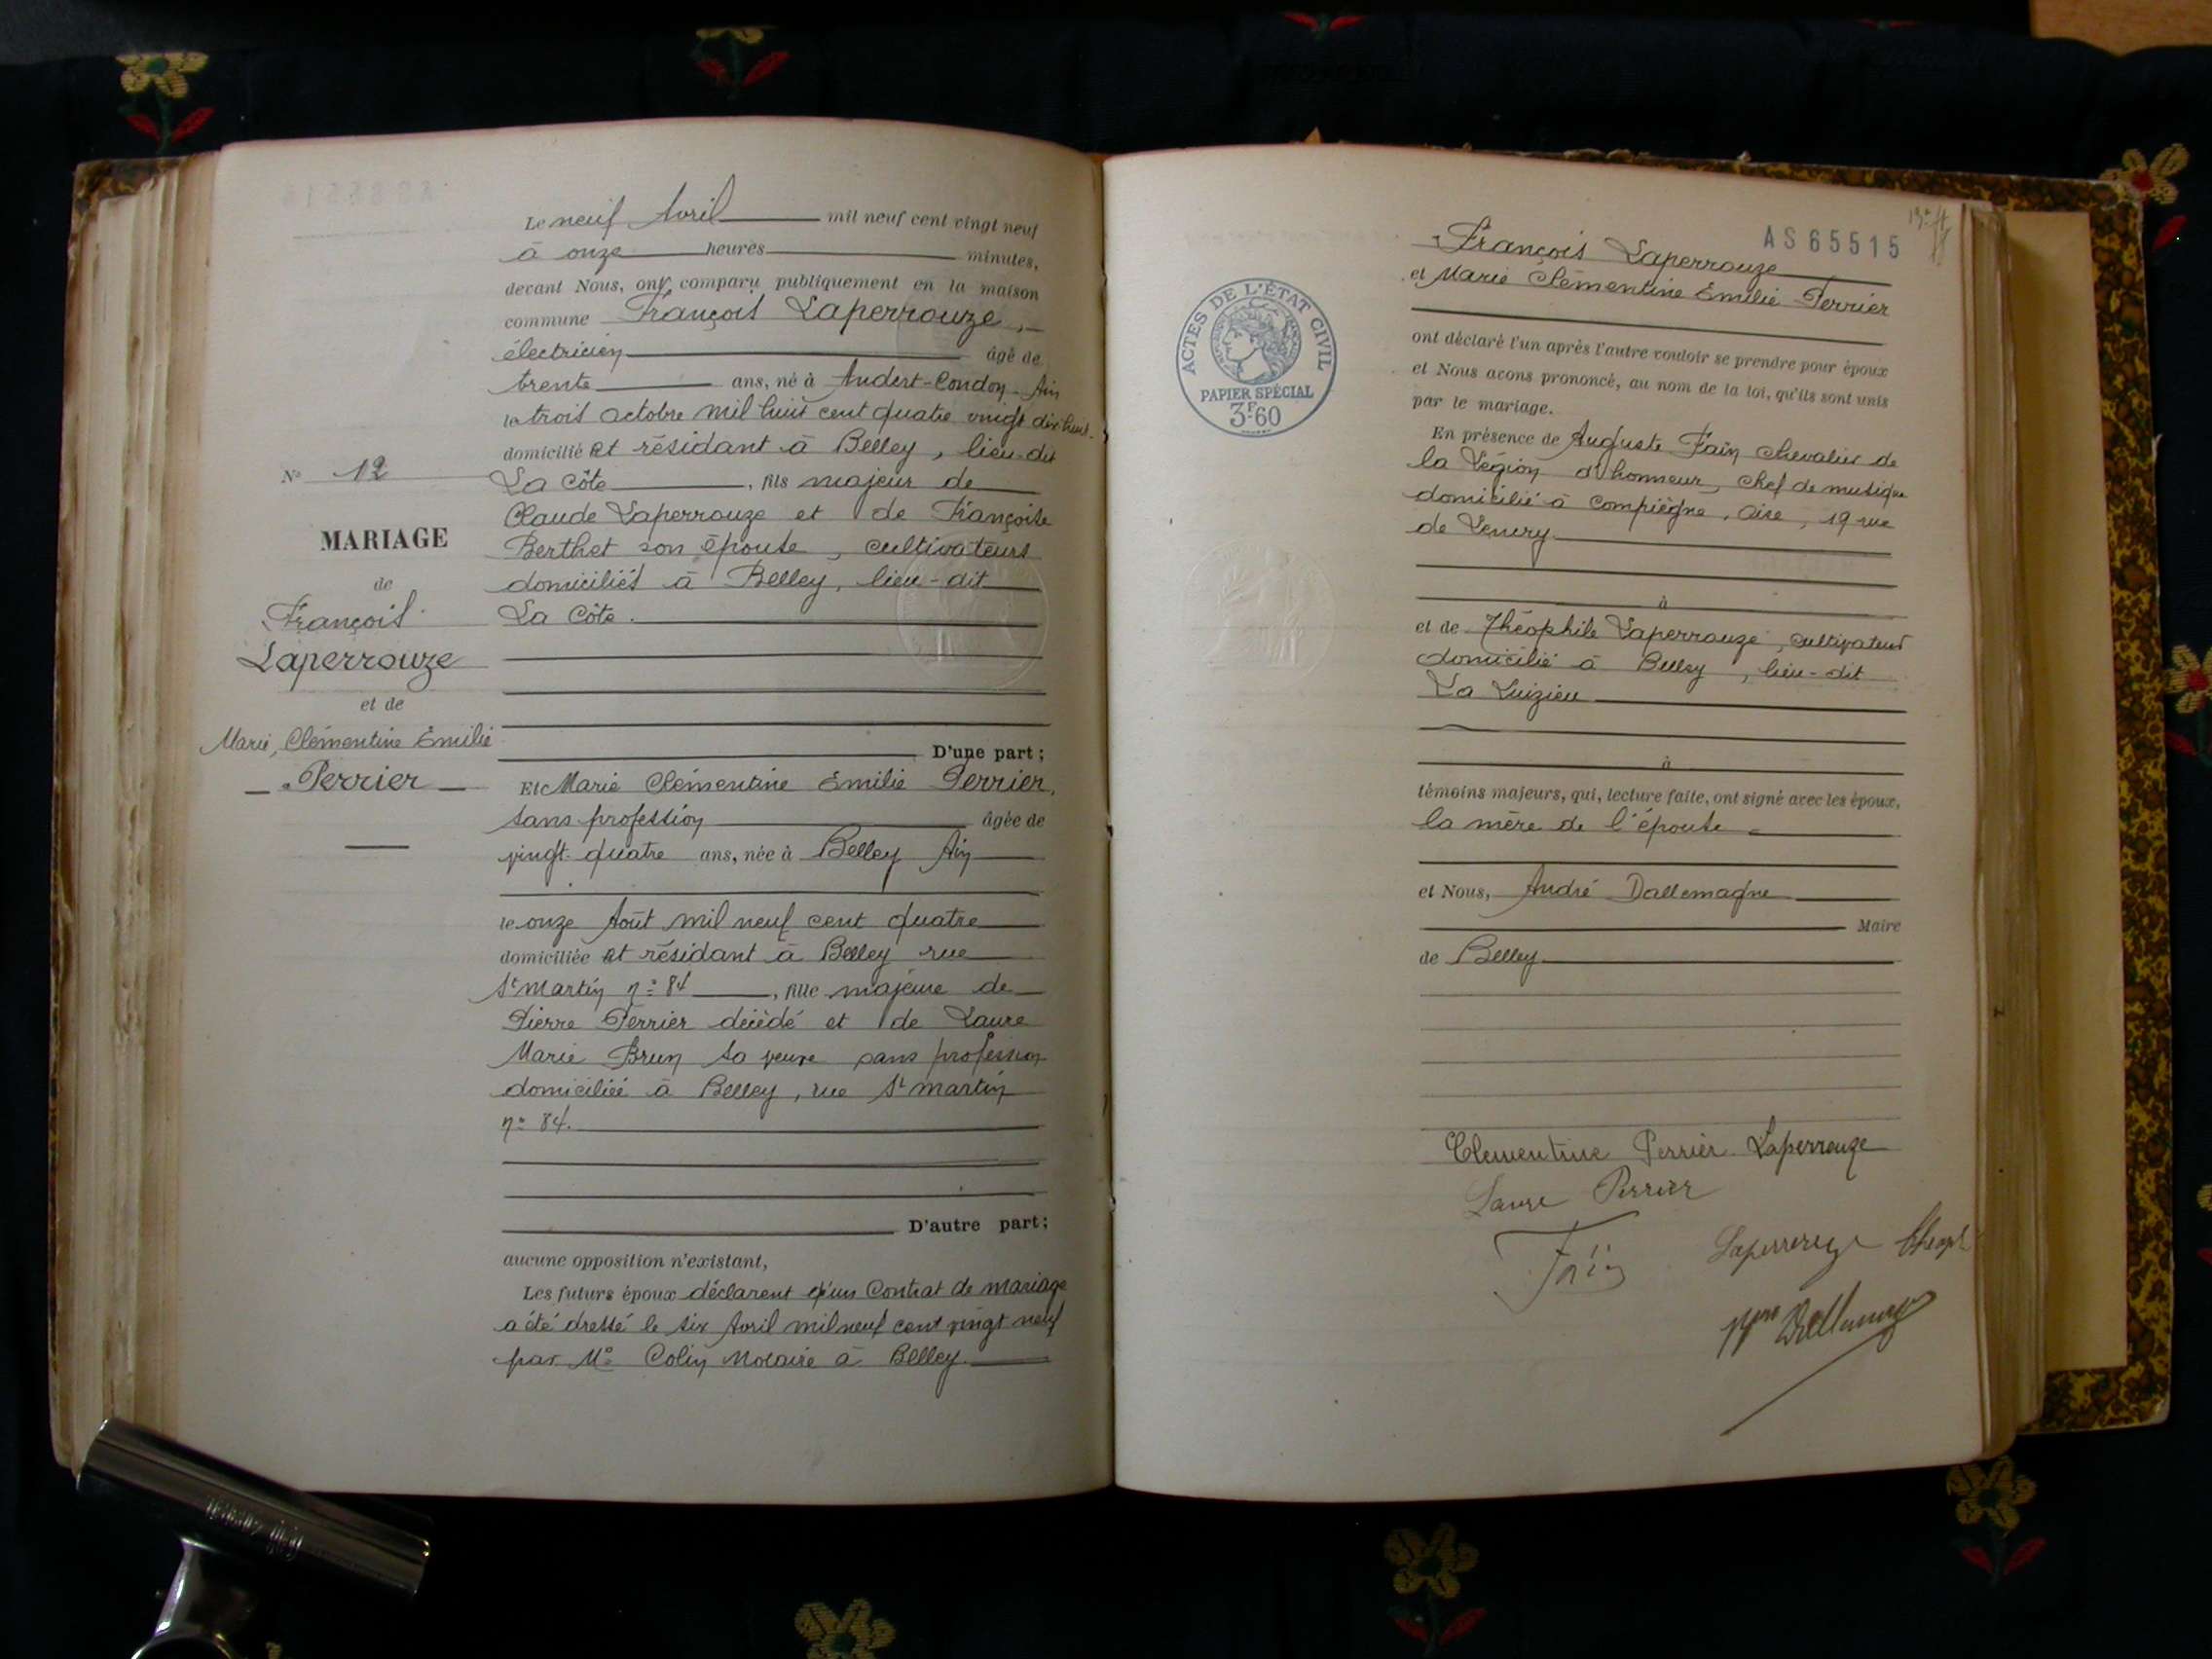 Le neuf Avril mil neuf cent vingt neuf
à onze heures minutes,
devant Nous, ont comparu publiquement en la maison
commune François Laperrouze,
électricien âgé de
trente ans, né à Andert-Condon Ain
le trois octobre mil huit cent quatre vingt dix huit
domicilié et résidant à Belley, lieu-dit
La Côte, fils majeur de
Claude Laperrouze et de Françoise
Berthet son épouse, cultivateurs
domiciliés à Belley, lieu-dit
La Côte.
D'une part;
N° 12
MARIAGE
de
François
Laperrouze
et de
Marie, Clémentine Emilie
Perrier
Et Marie Clémentine Emilie Perrier,
sans profession âgée de
vingt-quatre ans, née à Belley Ain
le onze Août mil neuf cent quatre
domiciliée et résidant à Belley rue
St martin n° 84, fille majeure de
Pierre Perrier décédé et de Laure
Marie Brun sa veuve sans profession
domiciliée à Belley, rue St martin
n° 84.
D'autre part;
aucune opposition n'existant,
Les futurs époux déclarent qu'un Contrat de mariage
a été dressé le six Avril mil neuf cent vingt neuf
par Me Colin Notaire à Belley.
AS 65515
François Laperrouze
et Marie Clémentine Emilie Perrier
ACTES DE L'ÉTAT CIVIL
PAPIER SPÉCIAL
3F.60
ont déclaré l'un après l'autre vouloir se prendre pour époux
et Nous avons prononcé, au nom de la loi, qu'ils sont unis
par le mariage.
En présence de Auguste Faïn chevalier de
la Légion d'honneur, chef de musique
domicilié à Compiègne, Oise, 19 rue
de
à
et de Théophile Laperrouze, cultivateur
domicilié à Belley, lieu-dit
La Luizieu
à
témoins majeurs, qui, lecture faite, ont signé avec les époux,
la mère de l'épouse
et Nous, André Dallemagne
Maire
de Belley
Clementine Perrier Laperrouze
Laure Perrier
Faïn
Laperrouze Théoph
Dallemagne